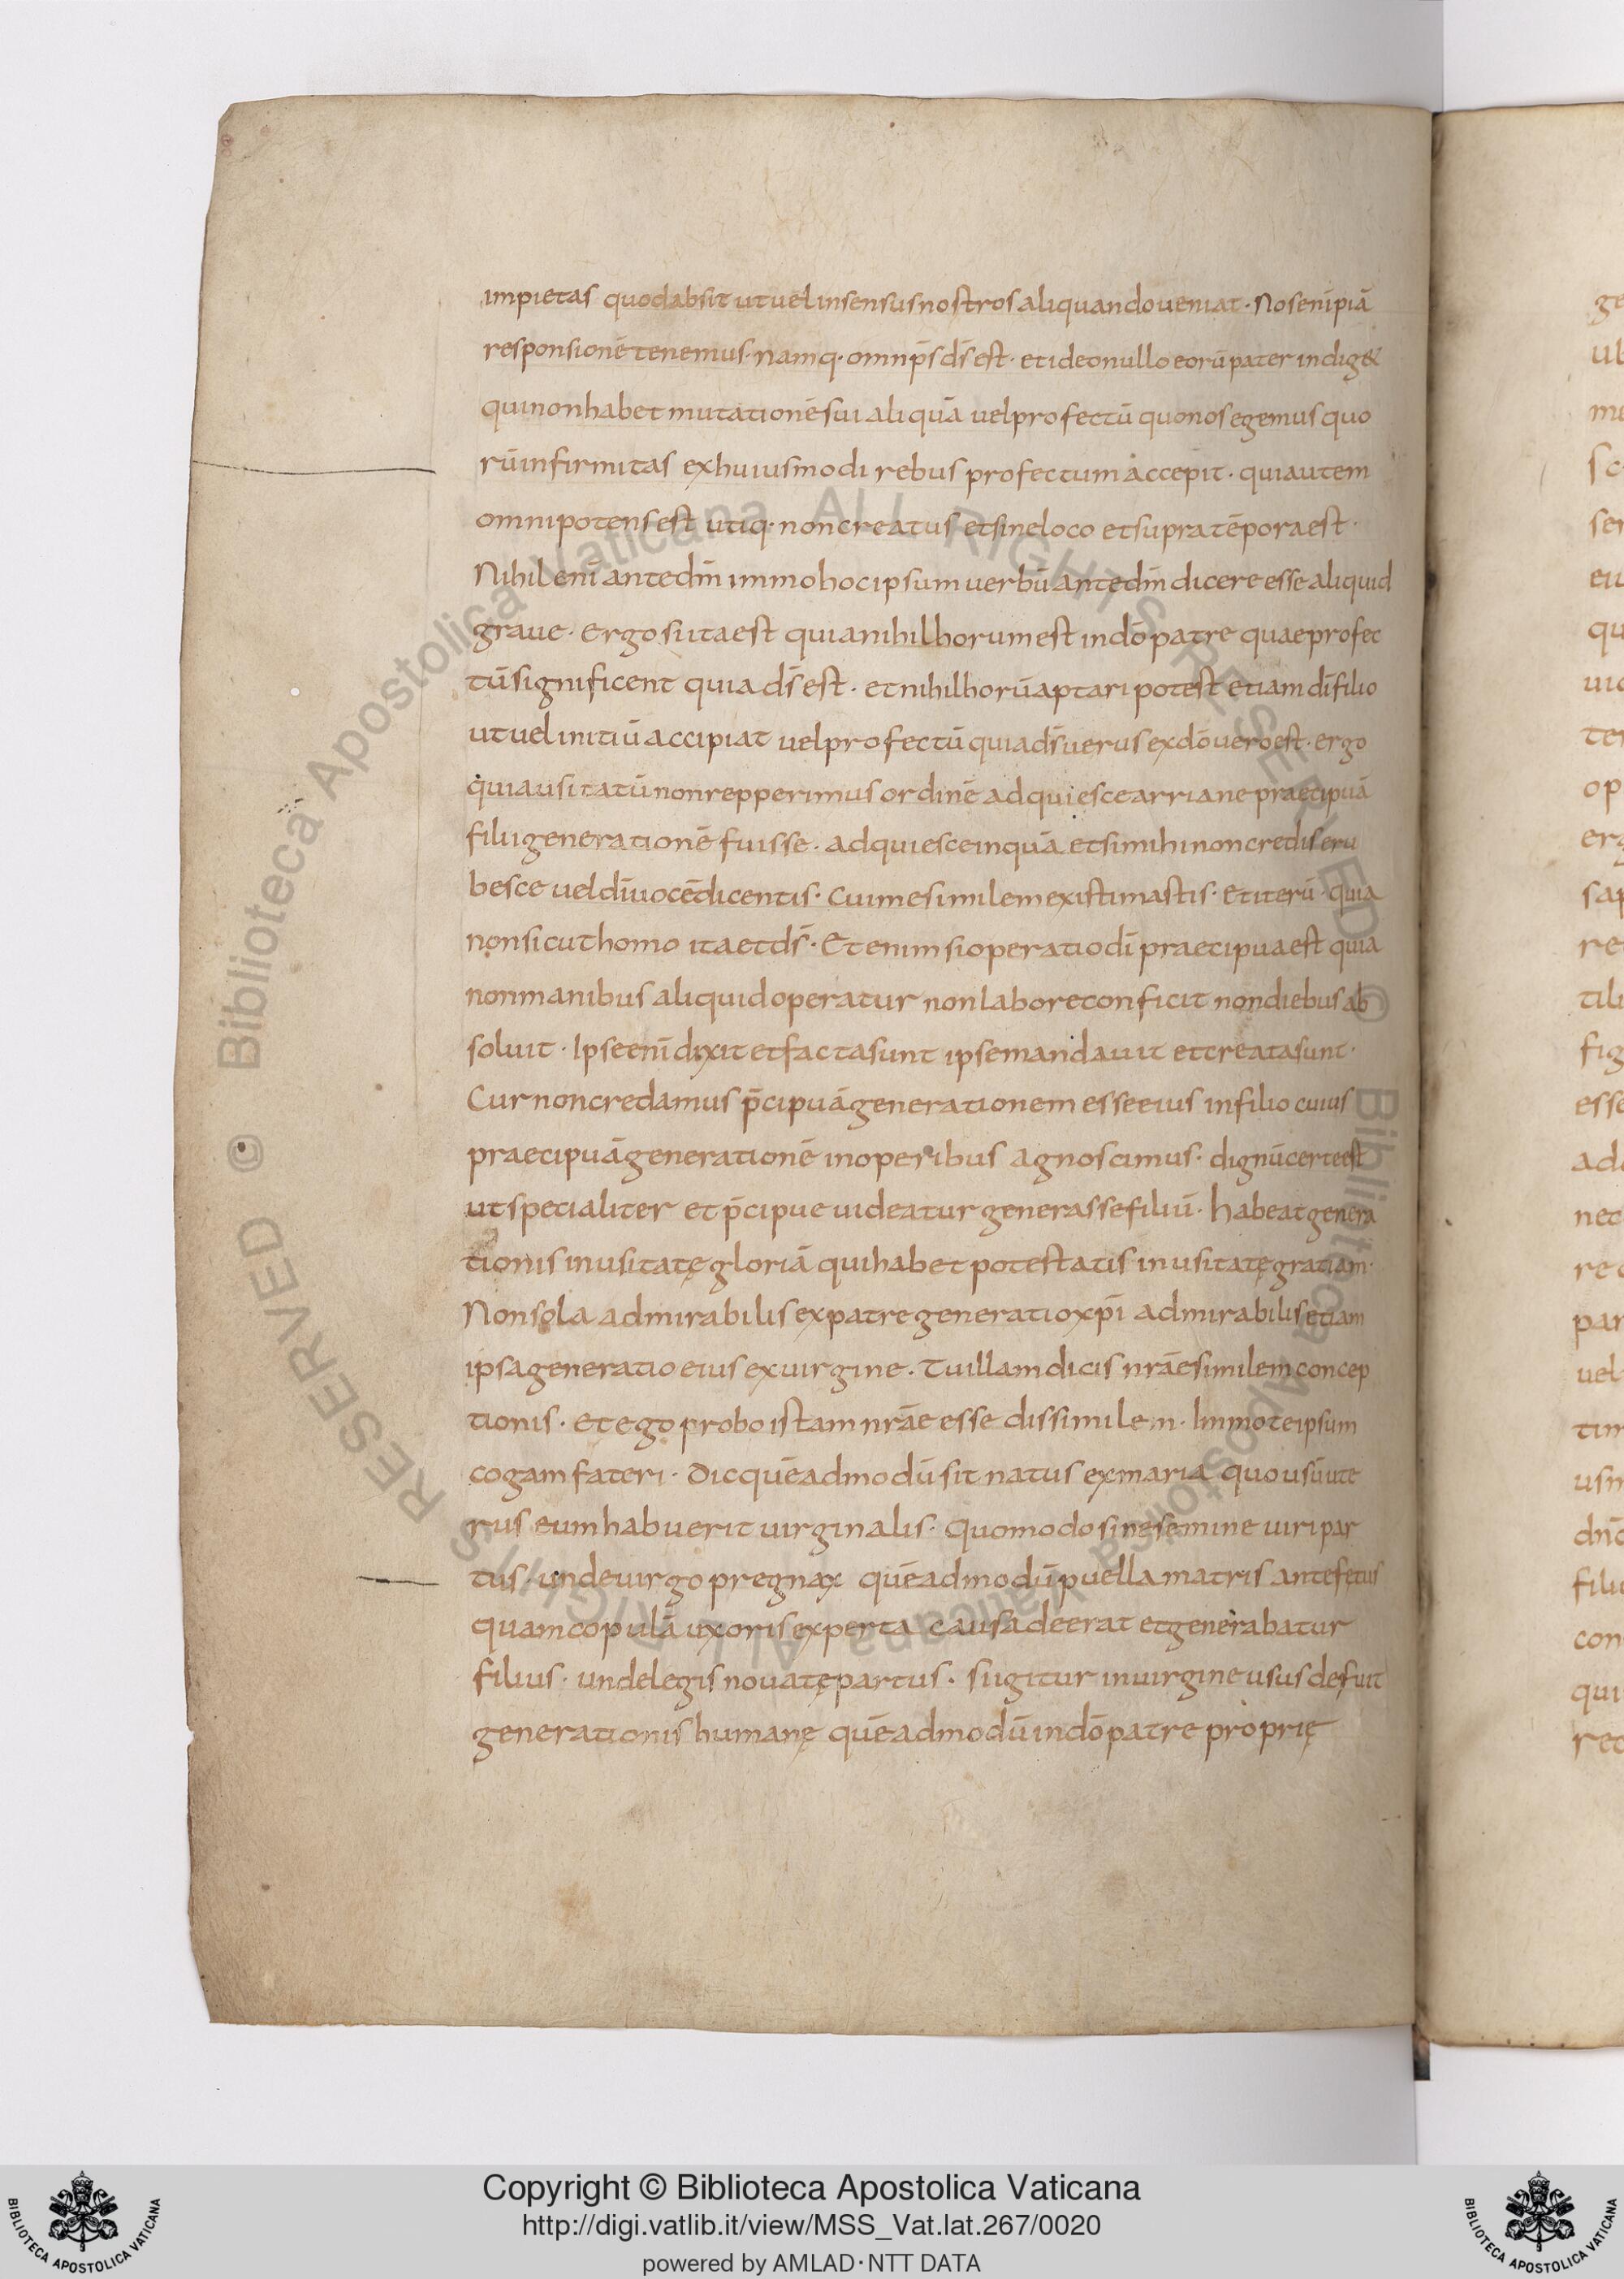 impietas quod absit ut vel in sensus nostros aliquando ueniat · Nos eni piā
responsionē tenemus · namq · omnip̄s d̄s est · et ideo nullo eorū pater indig&
qui non habet mutationē sui aliquā vel profectū quo nos egemus quo
rū infirmitas ex huiusmodi rebus profectum accepit · qui autem
omnipotens est utiq · non creatus et sine loco et supra tēpora est ·
Nihil enī ante dm̄ immo hoc ipsum verbū ante dm̄ dicere esse aliquid
graue · Ergo si ita est quia nihil horum est in dō patre quae profec
tū significent quia d̄s est · et nihil horū aptari potest etiam dī filio
ut vel initiū accipiat vel profectū quia d̄s verus ex dō vero est · ergo
quia usitatū non repperimus ordinē adquiesce arriane praecipuā
filii generationē fuisse · adquiesce inquā et si mihi non credis eru
besce vel dī uocē dicentis · Cui me similem existimastis · Et iterū · quia
non sicut homo ita et d̄s · Et enim si operatio dī praecipua est quia
non manibus aliquid operatur non labore conficit non diebus ab
soluit · Ipse enī dixit et facta sunt ipse mandauit et creata sunt ·
Cur non credamus p̄cipuā generationem esse eius in filio cuius
praecipuā generationē in operibus agnoscimus · dignū certe est
ut specialiter et p̄cipue uideatur generasse filiū · habeat genera
tionis inusitatę gloriā qui habet potestatis inusitatę gratiam ·
Non sola admirabilis ex patre generatio xp̄i admirabilis etiam
ipsa generatio eius ex uirgine · Tu illam dicis nr̄ae similem concep
tionis · Et ego probo istam nr̄ae esse dissimilem · Immo te ipsum
cogam fateri · Dic quēadmodū sit natus ex maria quo usū ute
rus eum habuerit uirginalis · Quomodo sine semine uiri par
tus · unde uirgo pregnax quēadmodū puella matris ante fetus
quam copulā uxoris experta causa deerat et generabatur
filius · unde legis nouatę partus · si igitur in uirgine usus defuit
generationis humanę quēadmodū in dō patre proprię
Copyright © Biblioteca Apostolica Vaticana
http://digi.vatlib.it/view/MSS_Vat.lat.267/0020
powered by AMLAD · NTT DATA